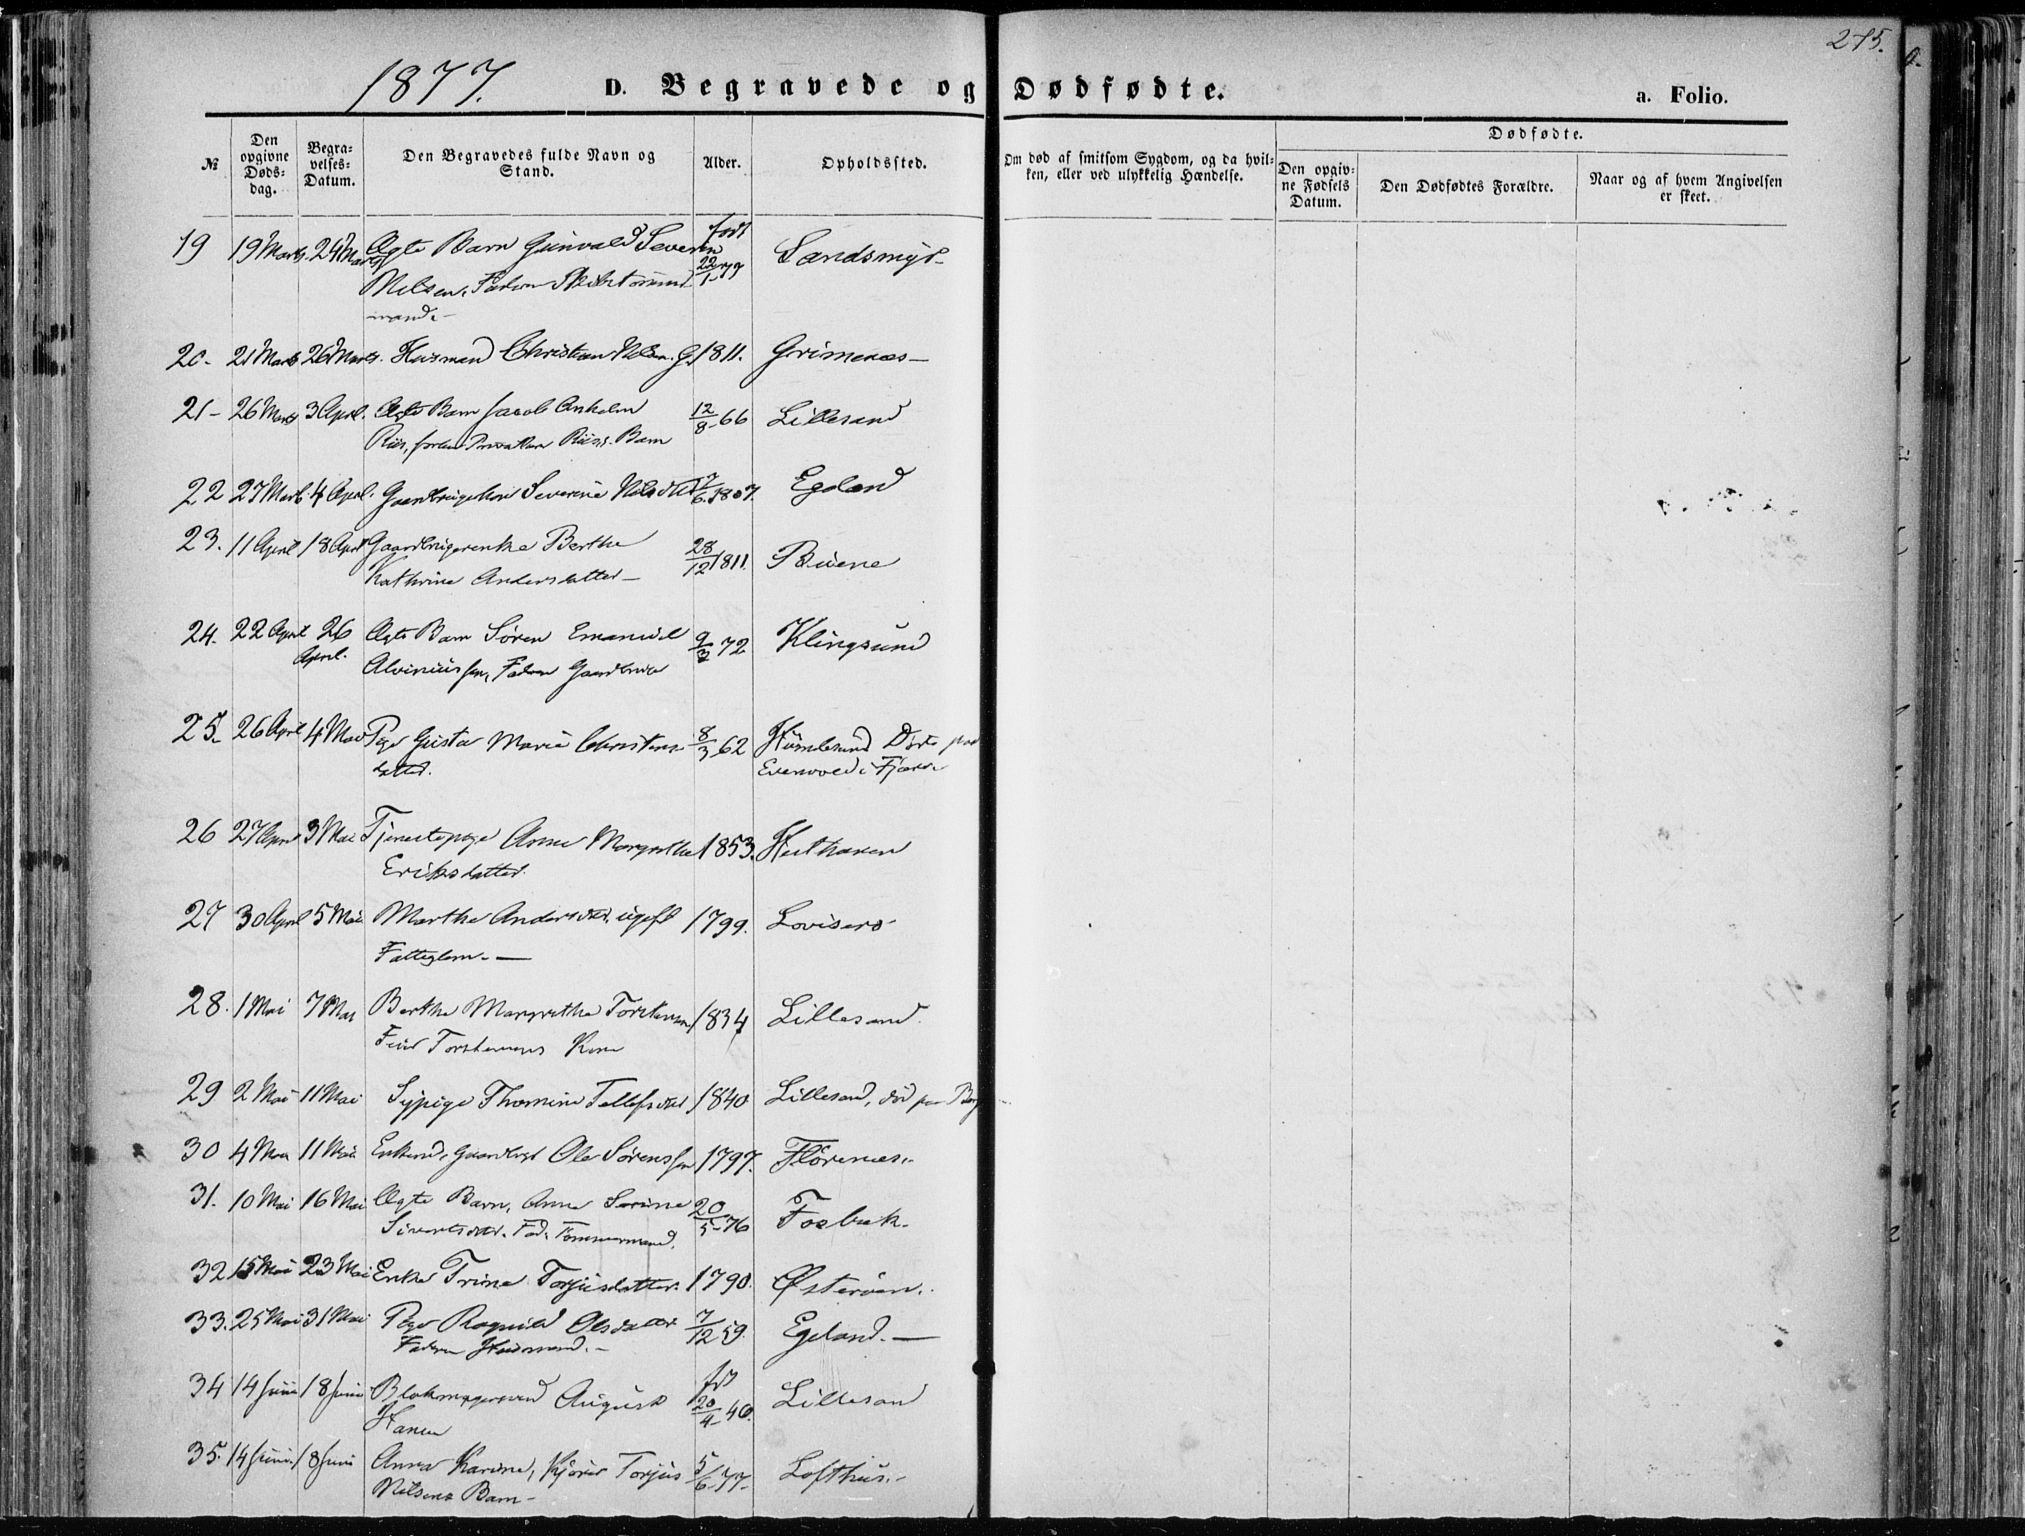 275.
1877. D. Begravede og Dødfødte. a. Folio.
№ Den opgivne Døds-dag. Begra-velses-Datum. Den Begravedes fulde Navn og Stand. Alder. Opholdssted. Om død af smitsom Sygdom, og da hvil-ken, eller ved ulykkelig Hændelse. Dødfødte. Den opgiv-ne Fødsels Datum. Den Dødfødtes Forældre. Naar og af hvem Angivelsen er skeet.
19 19 Marts 24 Marts Ægte Barn Gunvald Severin født
Nilsen, Faderen 22/1
mand.
20- 21 Marts 26 Marts. Husmand Christian Nilsen. G. 1811. Grimenæs-
21- 26 Marts 3 April. Ægte Barn Jacob Anholm 12/8-66 Lillesand
Riis, Barn
22 27 Marts 4 April. Severine Nilsdtr 7/6 1807. Egeland
23. 11 April 18 April Gaardbrugerenke Berthe 28/12 1811. Buene
Kathrine Andersdatter-
24. 22 April 26 April. Ægte Barn Søren Emanuel 9/3 72 Klingsund
Alviniussen, Faderen Gaardbruger
25. 26 April 4 Mai Pige Gusta Maria Christens 8/3 62 Humlesund Døde paa
datter. i Fjære
26 27 April 3 Mai Tjenestepige Anne Margrethe 1853.
Eriksdatter.
27 30 April 5 Mai Marthe Andersdtr. ugift 1799.
Fattiglem.-
28. 1 Mai 7 Mai Berthe Margrethe Torstensen 1834 Lillesand.
Torstensens Kone
29 2 Mai 11 Mai Sypige Thomine Tellefsdtr 1840 Lillesand, død paa
30 4 Mai 11 Mai Enkemd, Gaardbrgr Ole Sørenssen 1797. Flørenæs.
31. 10 Mai 16 Mai Ægte Barn, Anne Serine 20/5-76 Fosbæk.
Sivertsdtr. Fad. Tømmermand.
32 15 Mai 23 Mai Enke Trine Torjusdatter. 1790. Østerøen.
33. 25 Mai 31 Mai Pige Ragnild Olsdatter 7/12 59. Egeland.-
Faderen Husmand.-
34 14 Juni 18 Juni Blokmagersvend August fød 20/4-46. Lillesand
Hansen
35. 14 Juni. 18 Juni Anna Karine, Torjus 5/6-77- Lofthus.-
Nilsens Barn-